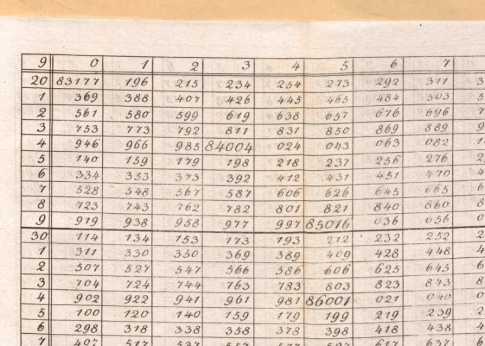 9 0 1 2 3 4 5 6 7
20 83177 196 215 234 254 273 292 311 3
1 369 388 407 426 445 465 484 503 5
2 561 580 599 619 638 657 676 696 7
3 753 773 792 811 831 850 869 889 9
4 946 966 985 84004 024 043 063 082 1
5 140 159 179 198 218 237 256 276 2
6 334 353 373 392 412 431 451 470 4
7 528 548 567 587 606 626 645 665 6
8 723 743 762 782 801 821 840 860 8
9 919 938 958 977 997 85016 036 056 0
30 114 134 153 173 193 212 232 252 2
1 311 330 350 369 389 409 428 448 4
2 507 527 547 566 586 606 625 645 6
3 704 724 744 763 783 803 823 843 8
4 902 922 941 961 981 86001 021 040 0
5 100 120 140 159 179 199 219 239 2
6 298 318 338 358 378 398 418 438 4
7 497 517 537 557 577 597 617 637 6